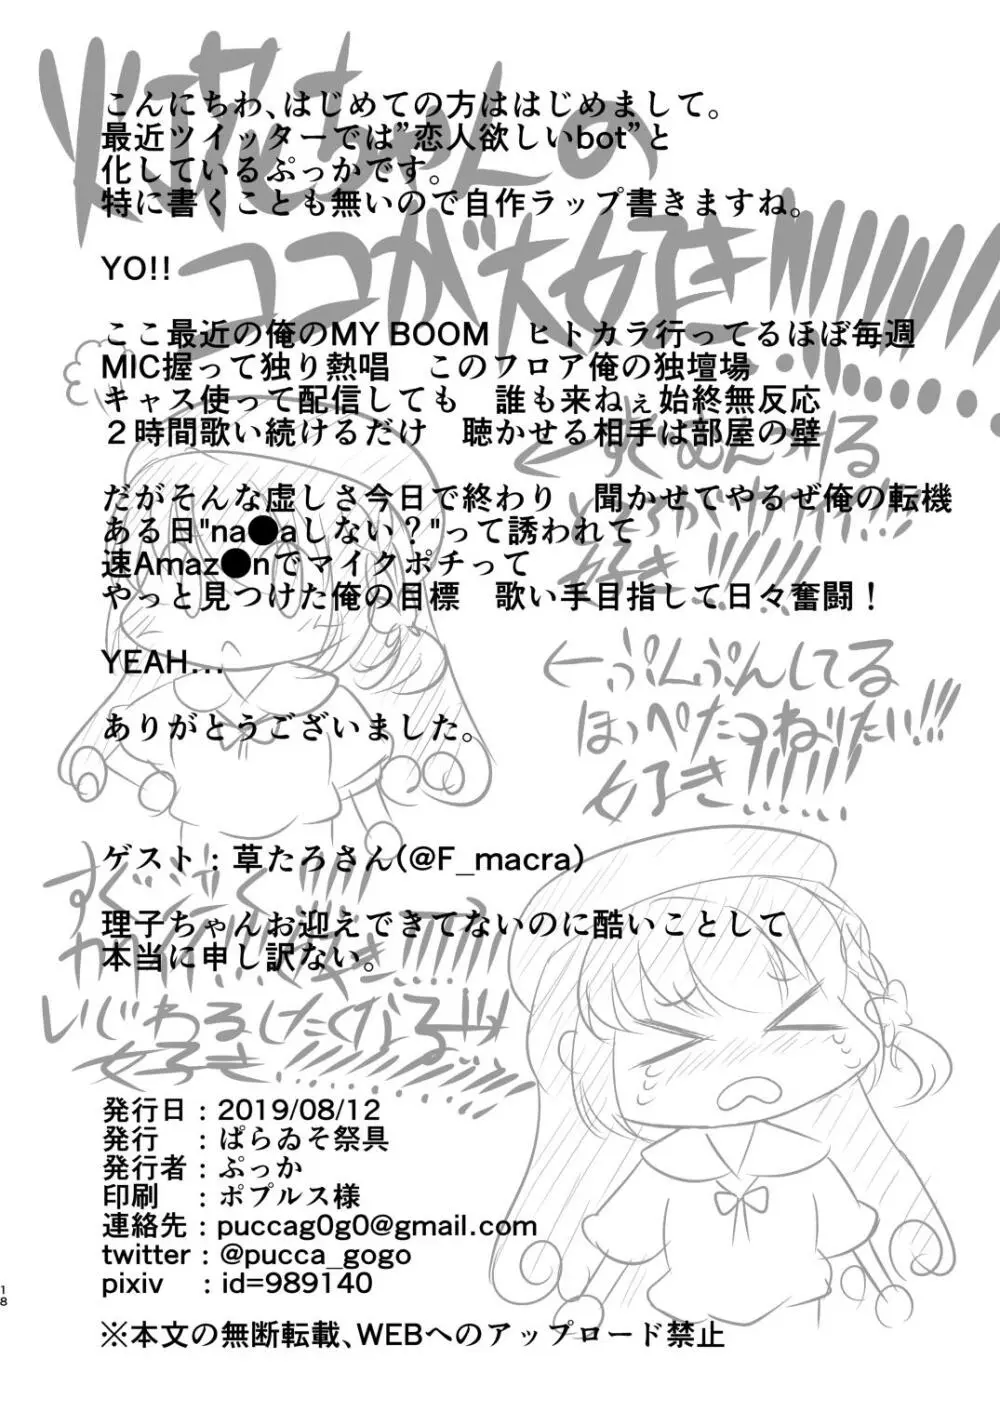 火花ちゃんの
ココが大好き!!!!!!!!!!!.........
こんにちわ、はじめての方ははじめまして。
最近ツイッターでは”恋人欲しいbot”と
化しているぷっかです。
特に書くことも無いので自作ラップ書きますね。
YO!!
ここ最近の俺のMY BOOM　ヒトカラ行ってるほぼ毎週
MIC握って独り熱唱　このフロア俺の独壇場
キャス使って配信しても　誰も来ねぇ始終無反応
２時間歌い続けるだけ　聴かせる相手は部屋の壁
だがそんな虚しさ今日で終わり　聞かせてやるぜ俺の転機
ある日"na●aしない？"って誘われて
速Amaz●nでマイクポチって
やっと見つけた俺の目標　歌い手目指して日々奮闘！
YEAH...
ありがとうございました。
←すぐむくれる
好き!!!!!!
←ぷんぷんしてる
ほっぺたつねりたい!!!
好き!!!!!!......
ゲスト：草たろさん(@F_macra)
理子ちゃんお迎えできてないのに酷いことして
本当に申し訳ない。
いじわるしたくなる!!!!...
好き.........
発行日：2019/08/12
発行　：ぱらゐそ祭具
発行者：ぷっか
印刷　：ポプルス様
連絡先：puccag0g0@gmail.com
twitter：@pucca_gogo
pixiv　：id=989140
※本文の無断転載、WEBへのアップロード禁止
18